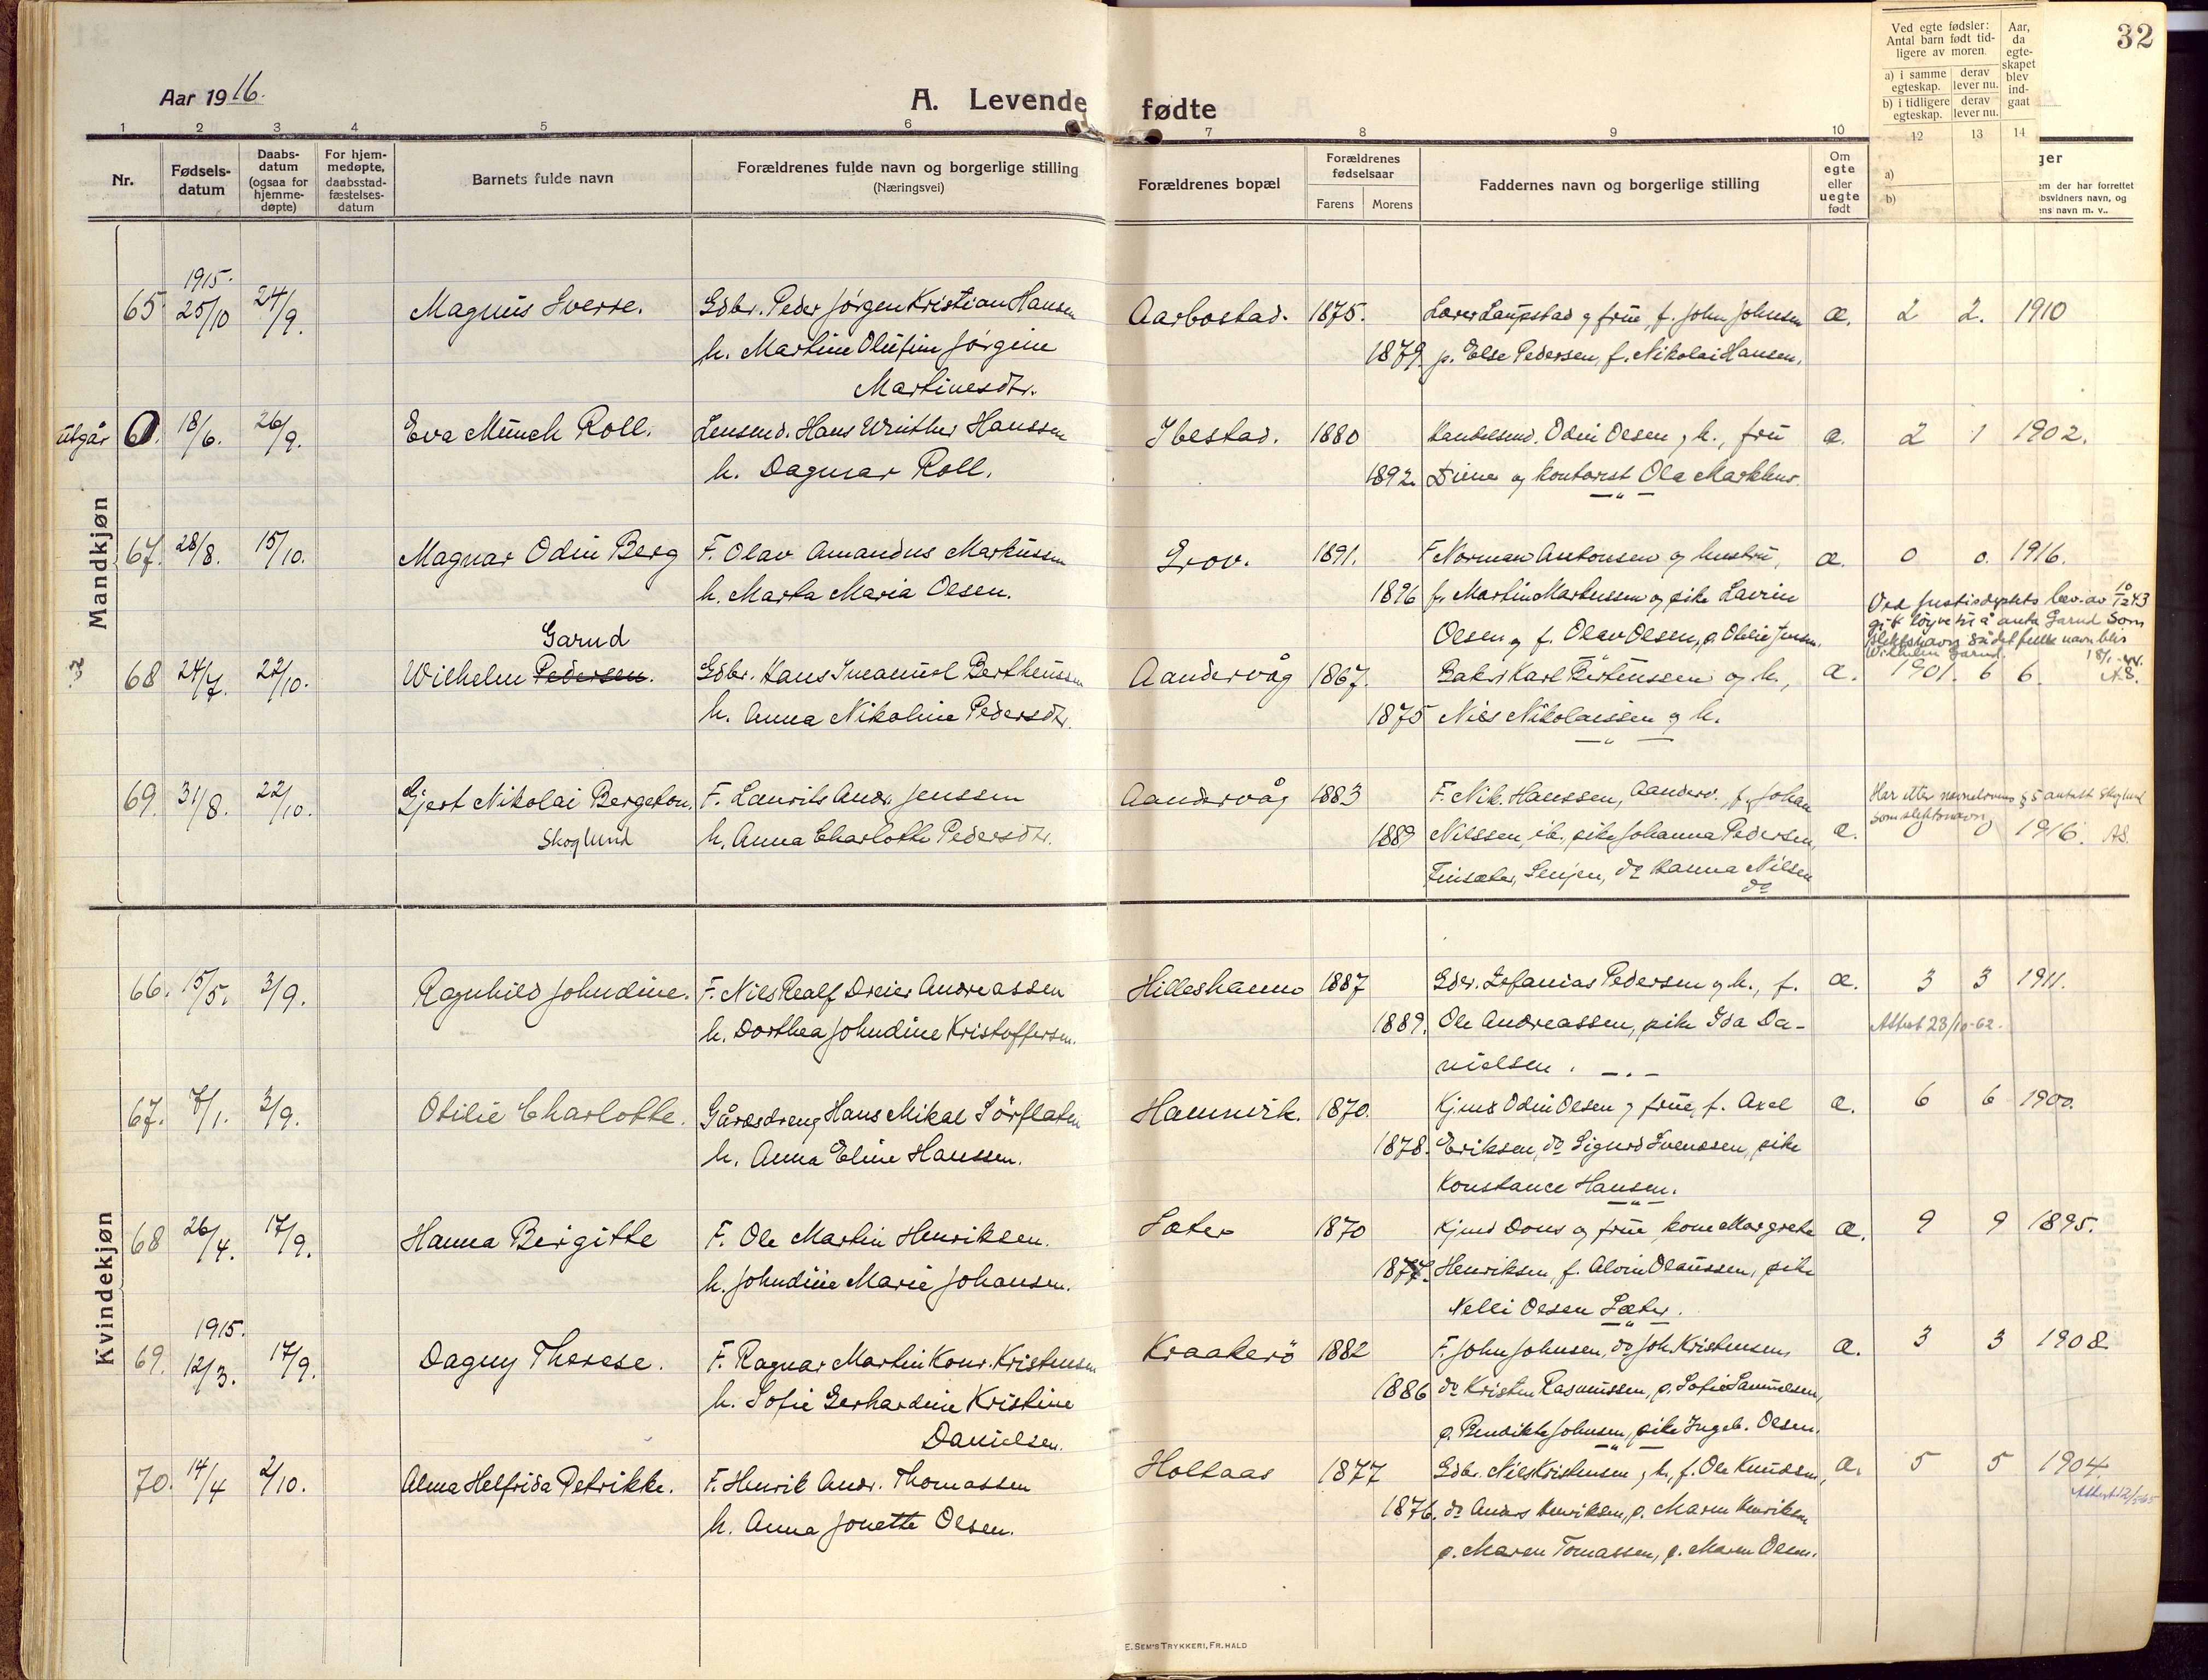 32
Aar 1916.
A. Levende fødte
1 2 3 4 5 6 7 8 9 10 12 13 14
Nr.
Fødsels-
datum
Daabs-
datum
(ogsaa for
hjemme-
døpte)
For hjem-
medøpte,
daabsstad-
fæstelses-
datum
Barnets fulde navn
Forældrenes fulde navn og borgerlige stilling
(Næringsvei)
Forældrenes bopæl
Forældrenes
fødselsaar
Farens Morens
Faddernes navn og borgerlige stilling
Om
egte
eller
uegte
født
Ved egte fødsler:
Antal barn født tid-
ligere av moren.
a) i samme egteskap. derav lever nu.
b) i tidligere egteskap. derav lever nu.
Aar,
da
egte-
skapet
blev
ind-
gaat
a)
b)
ger
em der har forrettet
bsvidners navn, og
ens navn m. v..
Mandkjøn
1915.
65. 25/10 24/9. Magnus Sverre. Gdbr. Peder Jørgen Kristian Hansen Aarbostad. 1875. Lærer Laupstad og frue, f. John Johnsen æ. 2 2. 1910
h. Martine Olufine Jørgine 1879. p. Else Pedersen, f. Nikolai Hansen.
Martinesdtr.
utgår 18/6. 26/9. Eva Münch Roll. Lensmd. Hans Winther Hanssen Ibestad. 1880 Handelsmd. Odin Olsen og h., fru æ. 2 1 1902.
h. Dagmar Roll. 1892. og kontorist Ola Markhus.
67. 28/8. 15/10. Magnar Odin Berg F. Olav Amandus Markussen Grov. 1891. F. Norman Antonsen og hustru, æ. 0 0. 1916.
h. Marta Maria Olsen. 1896 f. Martin Markussen og pike Lavin
Olsen og f. Olav Olsen, p. Otelie Jensen.
Ved Justisdeptets bev. av 10/12 43
gitt løyve til å anta Garud som
slektsnavn så det fulle navn blir
Wilhelm Garud. 18/1-44.
AS.
Garud
68 24/7. 22/10. Wilhelm Pedersen. Gdbr. Hans Imanuel Bertheussen Aandervåg 1867. Baker Karl Bertenssen og h., æ. 1901. 6 6.
h. Anna Nikoline Pedersdtr. 1875 Nils Nikolaissen og h.
69. 31/8. 22/10. Gjert Nikolai Bergeton. F. Laurits Andr. Jenssen Aandervåg 1883 F. Nik. Hanssen, Aanderv. f. Johan
Skoglund h. Anna Charlotte Pedersdtr. 1889 Nilssen, ib. pike Johanna Pedersen æ. 0 0 1916. AS.
Finsæter, Senjen, do Hanna Nilsen
do
Har etter navnelovens § 5 antatt Skoglund
som slektsnavn
Kvindekjøn
66. 15/5. 3/9. Ragnhild Johndine. F. Nils Realf Dreier Andreassen Hilleshamn 1887 Gdbr. Zefanias Pedersen og h., f. æ. 3 3 1911.
h. Dorthea Johndine Kristoffersen. 1889. Ole Andreassen, pike Ida Da- Attest 23/10-62.
nielsen.
67. 7/1. 3/9. Otilie Charlotte. Gårdsdreng Hans Mikal Sörflaten Hamnvik. 1870. Kjmd Odin Olsen og frue, f. Axel æ. 6 6 1900.
h. Anna Eline Hanssen. 1878. Eriksen, do Sigurd Svendsen, pike
Konstance Hansen.
68 26/4. 17/9. Hanna Birgitte F. Ole Martin Henriksen. Sæter 1870 Kjmd Dons og frue, kone Margrete æ. 9 9 1895.
h. Johndine Marie Johansen. Henriksen, f. Alvin Olaussen, pike
Nelli Olsen Sæter.
1915.
69. 12/3. 17/9. Dagny Therese. F. Ragnar Martin Konr. Kristensen Kraakerö 1882 F. John Johnsen, do Joh. Kristensen, æ. 3 3 1908.
h. Sofie Gerhardine Kristine 1886 do Kristen Rasmussen, p. Sofie Samuelsen,
Danielsen. p. Bendikte Johnsen, pike Ingeb. Olsen.
70. 14/4 2/10. Alma Helfrida Petrikke. F. Henrik Andr. Thomassen Holtaas 1877 Gdbr. Nils Kristensen og h., f. Ole Knudsen, æ. 5 5 1904.
h. Anna Jonette Olsen. 1876. do Anders Henriksen, p. Maren Henriksen
p. Maren Tomassen, p. Maren Olsen.
E. SEM'S TRYKKERI, FR.HALD